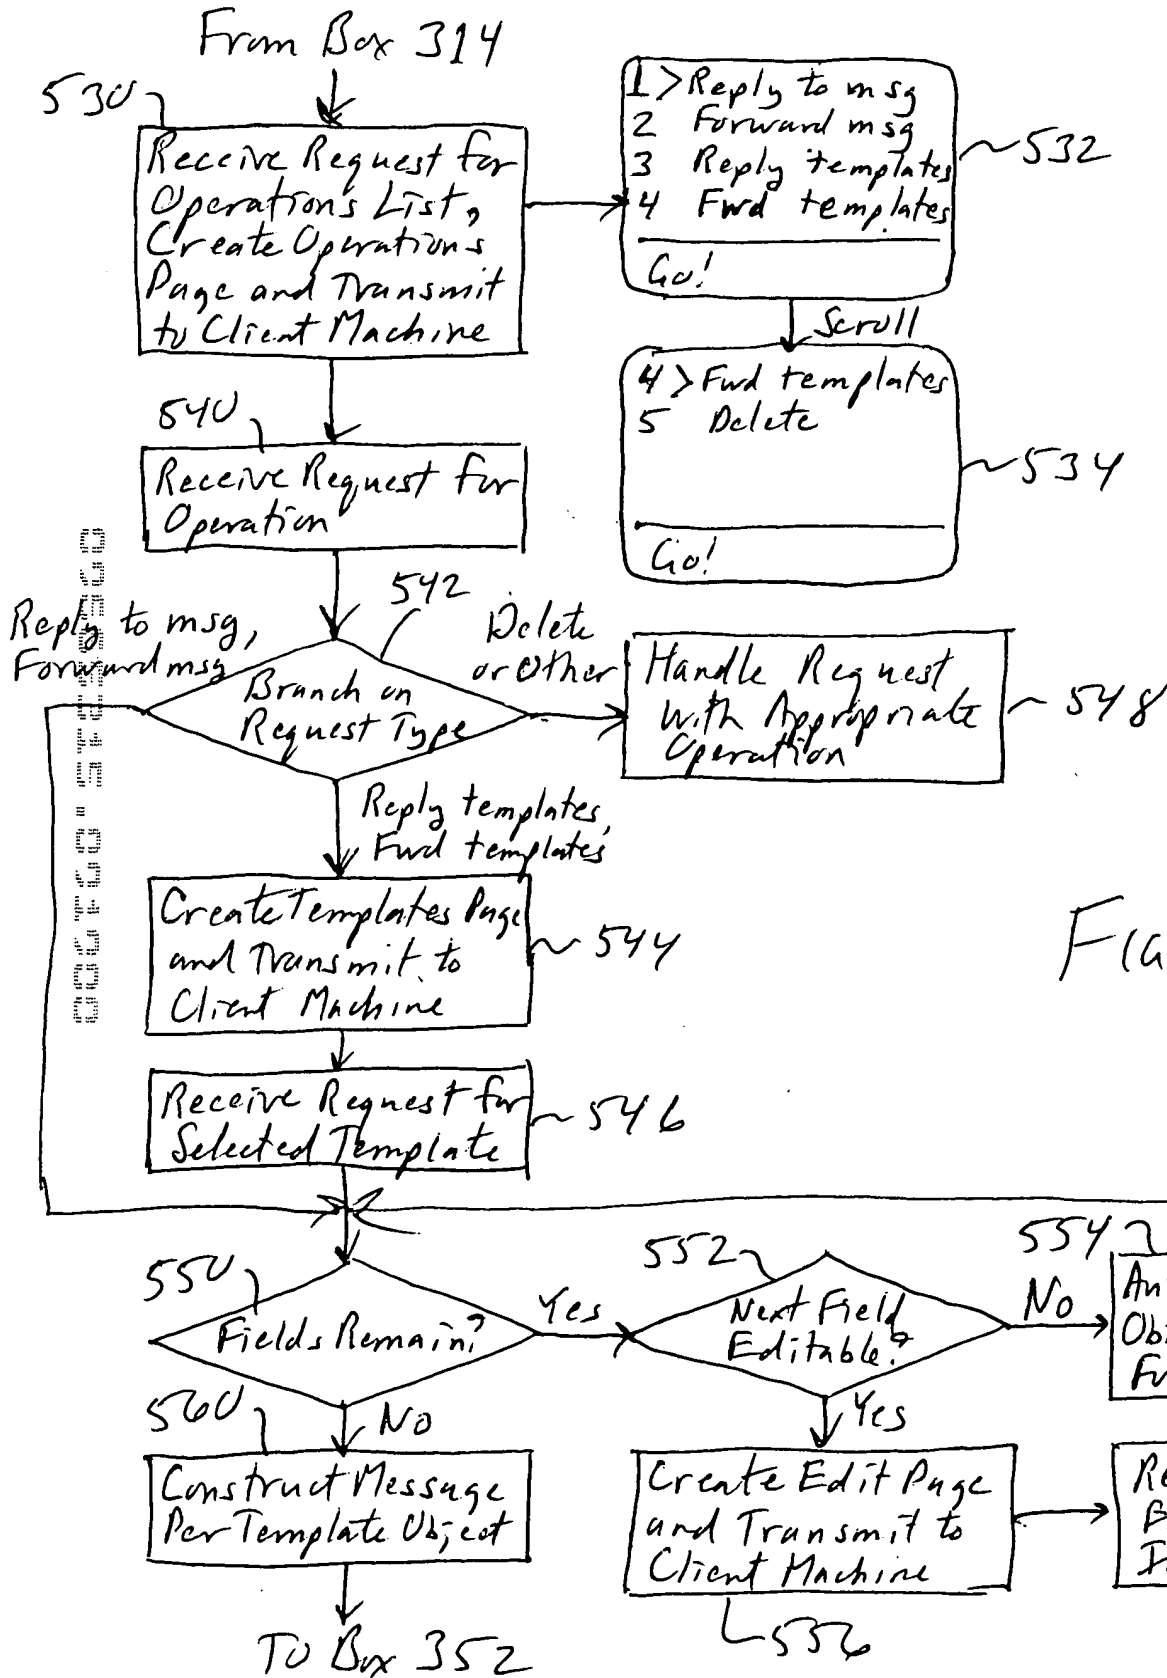 From Box 314
530
Receive Request for
Operations List,
Create Operations
Page and Transmit
to Client Machine
1 > Reply to msg
2 Forward msg
3 Reply templates
4 Fwd templates
Go!
532
Scroll
4 > Fwd templates
5 Delete
Go!
534
540
Receive Request for
Operation
542
Reply to msg,
Forward msg
Branch on
Request Type
Delete
or Other
Handle Request
with Appropriate
Operation
548
Reply templates,
Fwd templates
Create Templates Page
and Transmit to
Client Machine
544
Receive Request for
Selected Template
546
550
Fields Remain?
Yes
552
Next Field
Editable?
No
554
560
No
Construct Message
Per Template Object
Yes
Create Edit Page
and Transmit to
Client Machine
556
To Box 352